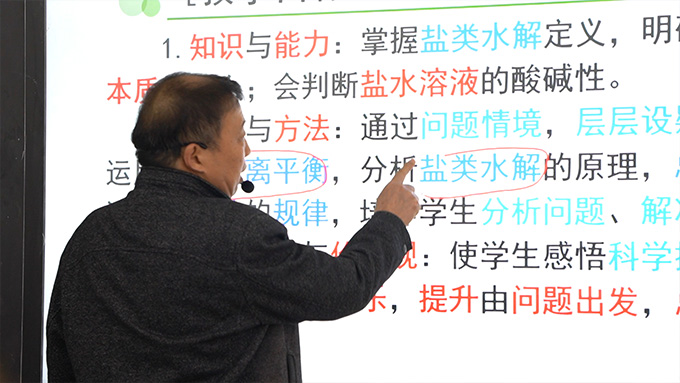 1. 知识与能力：掌握盐类水解定义，明
本质 ；会判断盐水溶液的酸碱性。
与方法：通过问题情境，层层设
运 离平衡，分析盐类水解的原理，
的规律，培 学生分析问题、解
观：使学生感悟科学
，提升由问题出发，